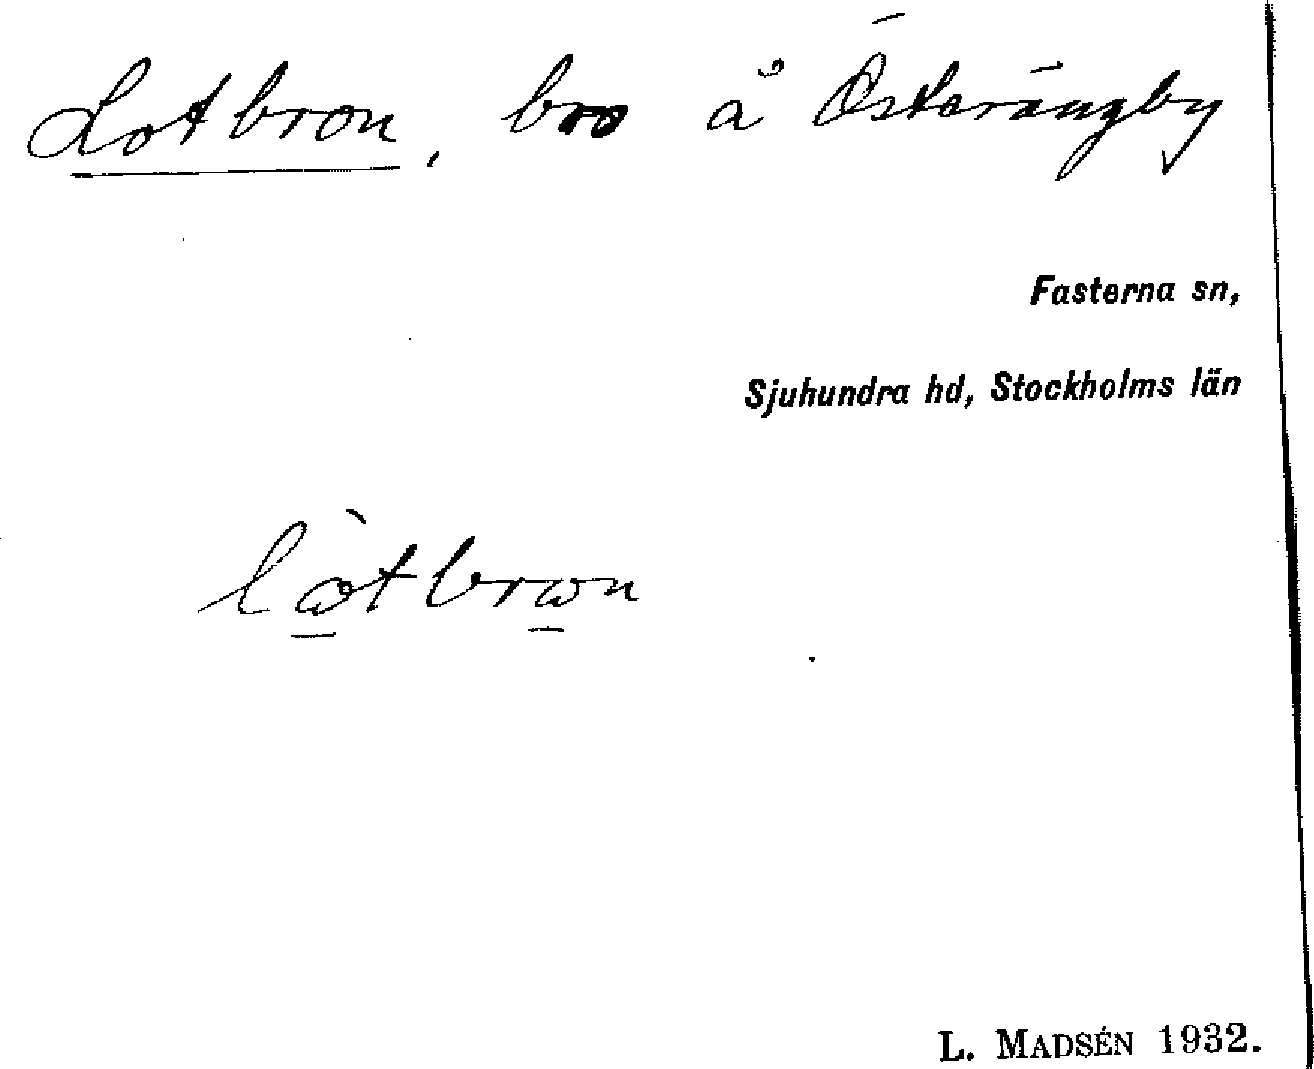 Lotbron, bro å Österängby
Fasterna sn,
Sjuhundra hd, Stockholms län
L. MADSÉN 1932.